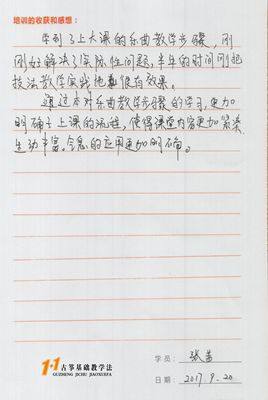 培训的收获和感想：
学到了上大课的乐曲教学步骤，刚
刚好解决了实际性问题，半年的时间刚把
技法教学实践完很有效果。
通过本对乐曲教学步骤的学习，更加
明确了上课的流程，使得课堂内容更加紧凑
生动丰富，令息的应用更加明确。
1+1 古筝基础教学法
GUZHENG JICHU JIAOXUEFA
学员：张苗
日期：2017.9.20